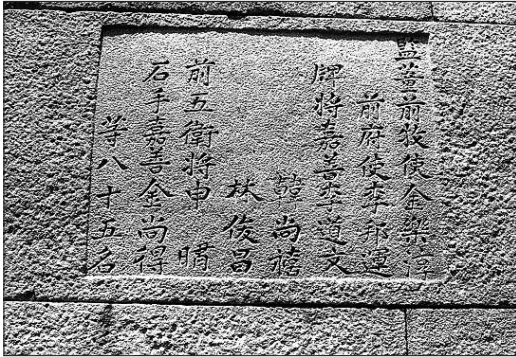 監董前牧使金樂淳
前府使李邦運
牌將嘉善李道文
韓尚禧
林俊昌
前五衛將申
石手嘉善金尚得
等八十五名